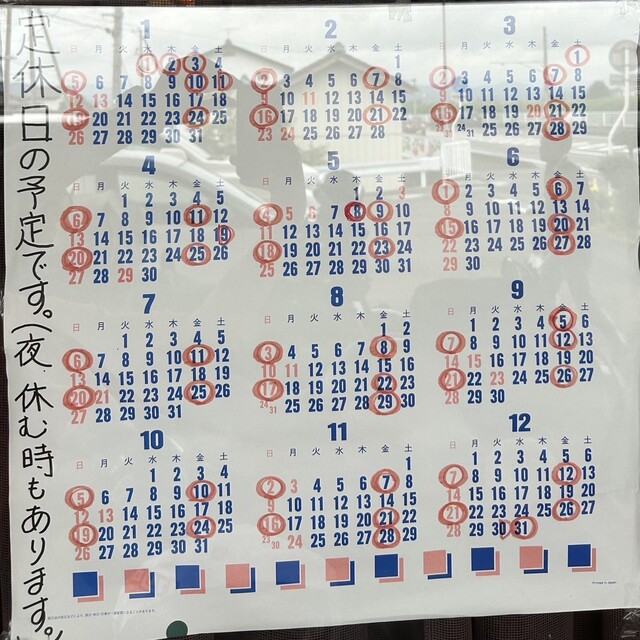 定休日の予定です。(夜、休む時もあります。)
1 2 3
日 月 火 水 木 金 土 日 月 火 水 木 金 土 日 月 火 水 木 金 土
1 2 3 4 1 1
5 6 7 8 9 10 11 2 3 4 5 6 7 8 2 3 4 5 6 7 8
12 13 14 15 16 17 18 9 10 11 12 13 14 15 9 10 11 12 13 14 15
19 20 21 22 23 24 25 16 17 18 19 20 21 22 16 17 18 19 20 21 22
26 27 28 29 30 31 23 24 25 26 27 28 23 30 24 31 25 26 27 28 29
4 5 6
日 月 火 水 木 金 土 日 月 火 水 木 金 土 日 月 火 水 木 金 土
1 2 3 4 5 1 2 3 1 2 3 4 5 6 7
6 7 8 9 10 11 12 4 5 6 7 8 9 10 8 9 10 11 12 13 14
13 14 15 16 17 18 19 11 12 13 14 15 16 17 15 16 17 18 19 20 21
20 21 22 23 24 25 26 18 19 20 21 22 23 24 22 23 24 25 26 27 28
27 28 29 30 25 26 27 28 29 30 31 29 30
7 8 9
日 月 火 水 木 金 土 日 月 火 水 木 金 土 日 月 火 水 木 金 土
1 2 3 4 5 1 2 1 2 3 4 5 6
6 7 8 9 10 11 12 3 4 5 6 7 8 9 7 8 9 10 11 12 13
13 14 15 16 17 18 19 10 11 12 13 14 15 16 14 15 16 17 18 19 20
20 21 22 23 24 25 26 17 18 19 20 21 22 23 21 22 23 24 25 26 27
27 28 29 30 31 24 31 25 26 27 28 29 30 28 29 30
10 11 12
日 月 火 水 木 金 土 日 月 火 水 木 金 土 日 月 火 水 木 金 土
1 2 3 4 1 1 2 3 4 5 6
5 6 7 8 9 10 11 2 3 4 5 6 7 8 7 8 9 10 11 12 13
12 13 14 15 16 17 18 9 10 11 12 13 14 15 14 15 16 17 18 19 20
19 20 21 22 23 24 25 16 17 18 19 20 21 22 21 22 23 24 25 26 27
26 27 28 29 30 31 23 30 24 25 26 27 28 29 28 29 30 31
Printed in Japan